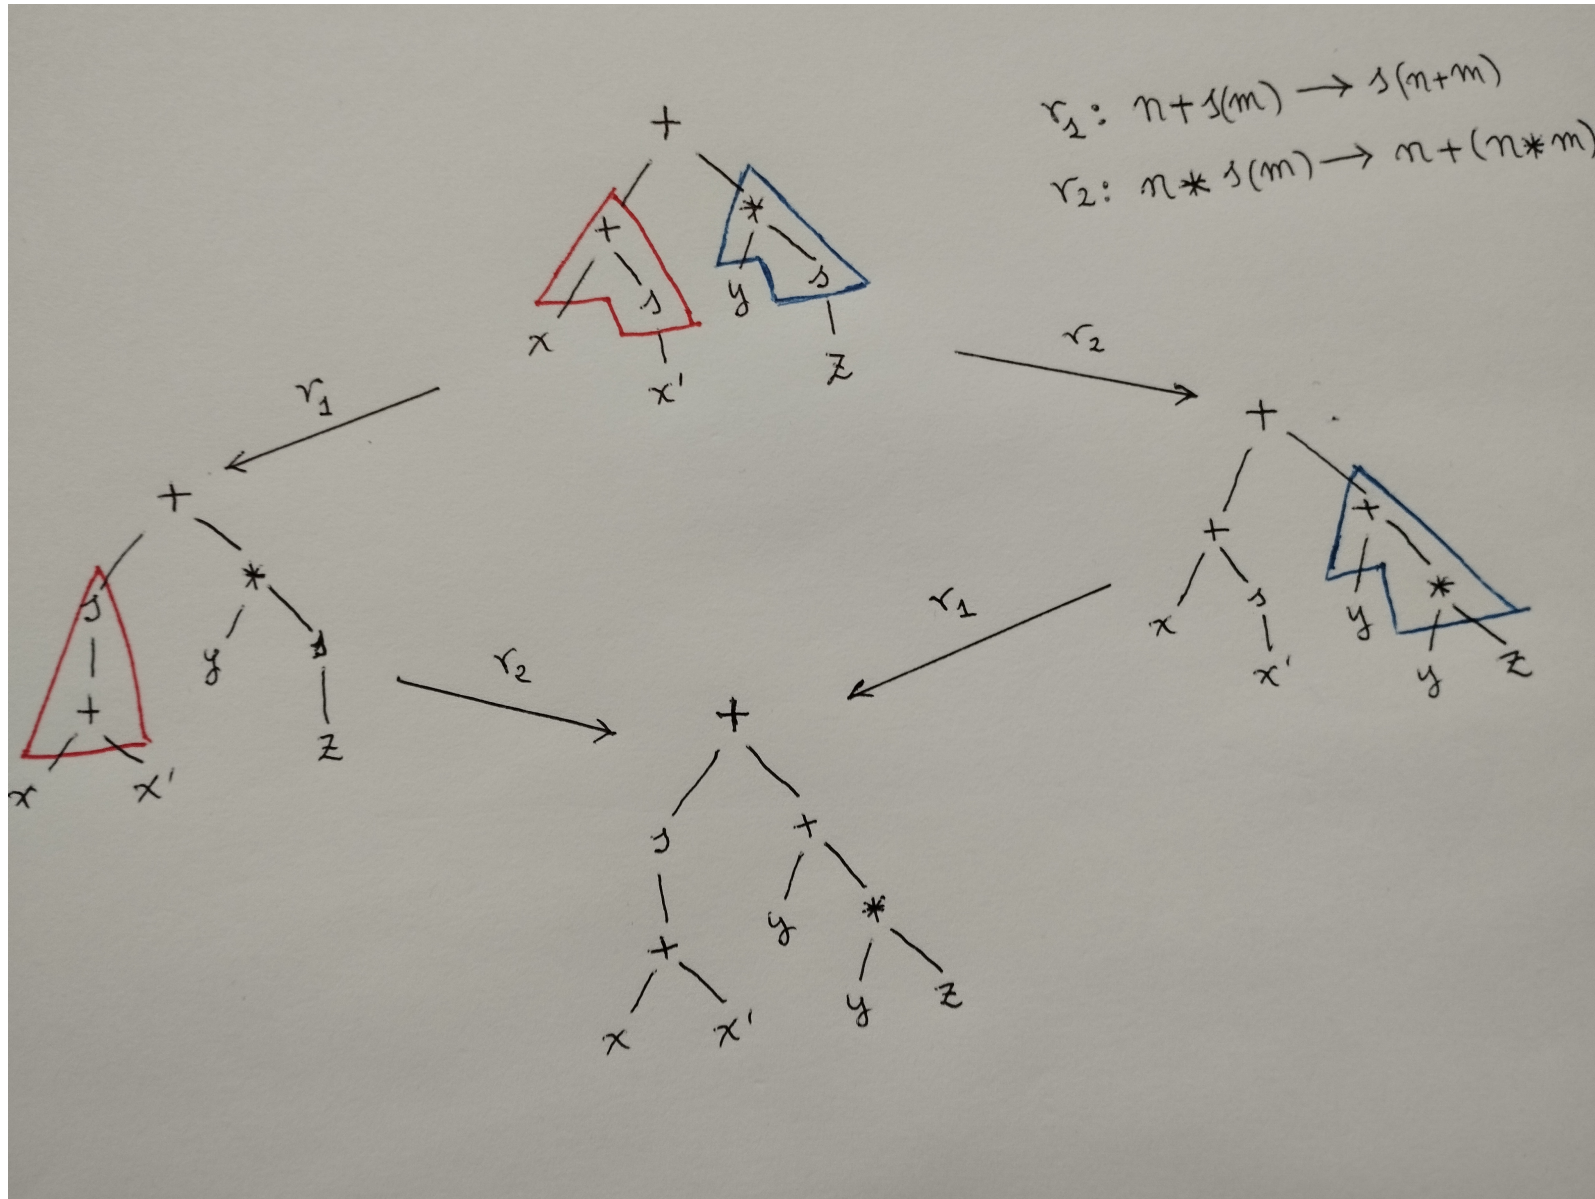 r₁: n+s(m) → s(n+m)
r₂: n * s(m) → n+(n*m)
+
+ *
x s y s
x' z
r₁
r₂
+
s *
+ y s
x x' z
+
+ +
x s y *
x' y z
r₂
r₁
+
s +
+ y *
x x' y z